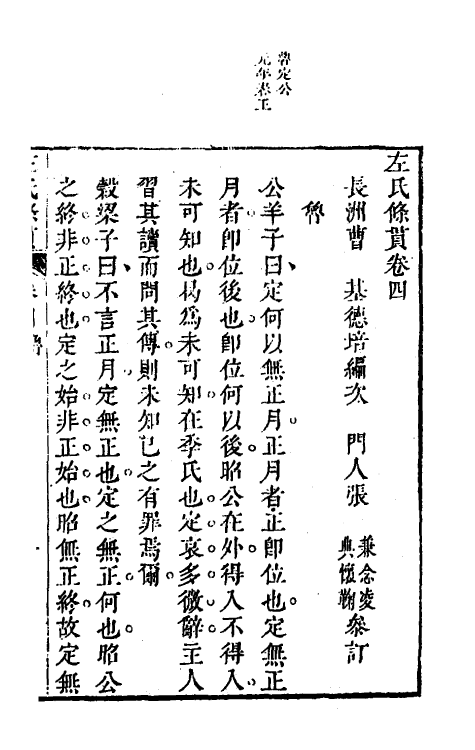 魯定公
元年春王
左氏條貫卷四
長洲曹　基德培編次　門人張　兼念凌　典懷鞠　參訂
魯
公羊子曰定何以無正月正月者正卽位也定無正
月者卽位後也卽位何以後昭公在外得入不得入
未可知也曷爲未可知在季氏也定哀多微辭主人
習其讀而問其傳則未知己之有罪焉爾
穀梁子曰不言正月定無正也定之無正何也昭公
之終非正終也定之始非正始也昭無正終故定無
左氏條貫　卷四　魯